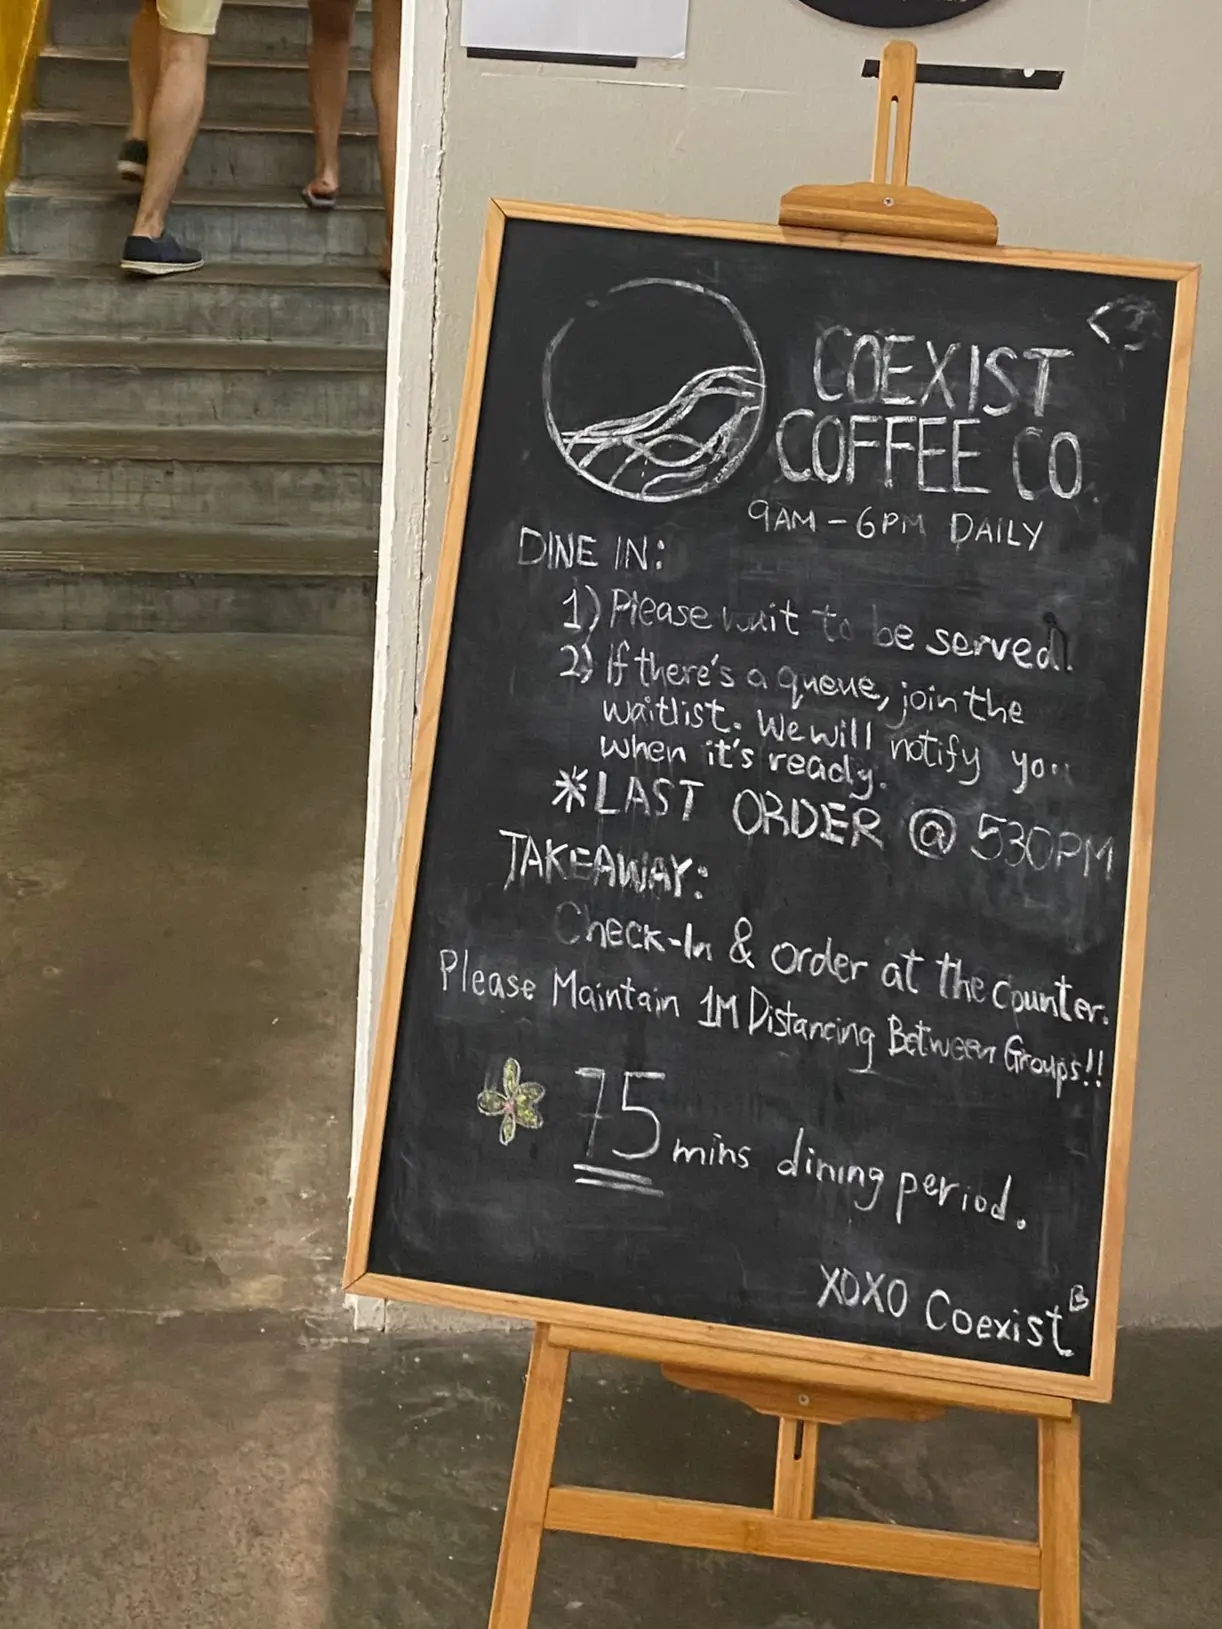 <3
COEXIST
COFFEE CO.
9AM - 6PM DAILY
DINE IN:
1) Please wait to be served.
2) If there's a queue, join the
waitlist. We will notify you
when it's ready.
*LAST ORDER @ 530PM
TAKEAWAY:
Check-In & order at the counter.
Please Maintain 1M Distancing Between Groups!!
75 mins dining period.
XOXO Coexist